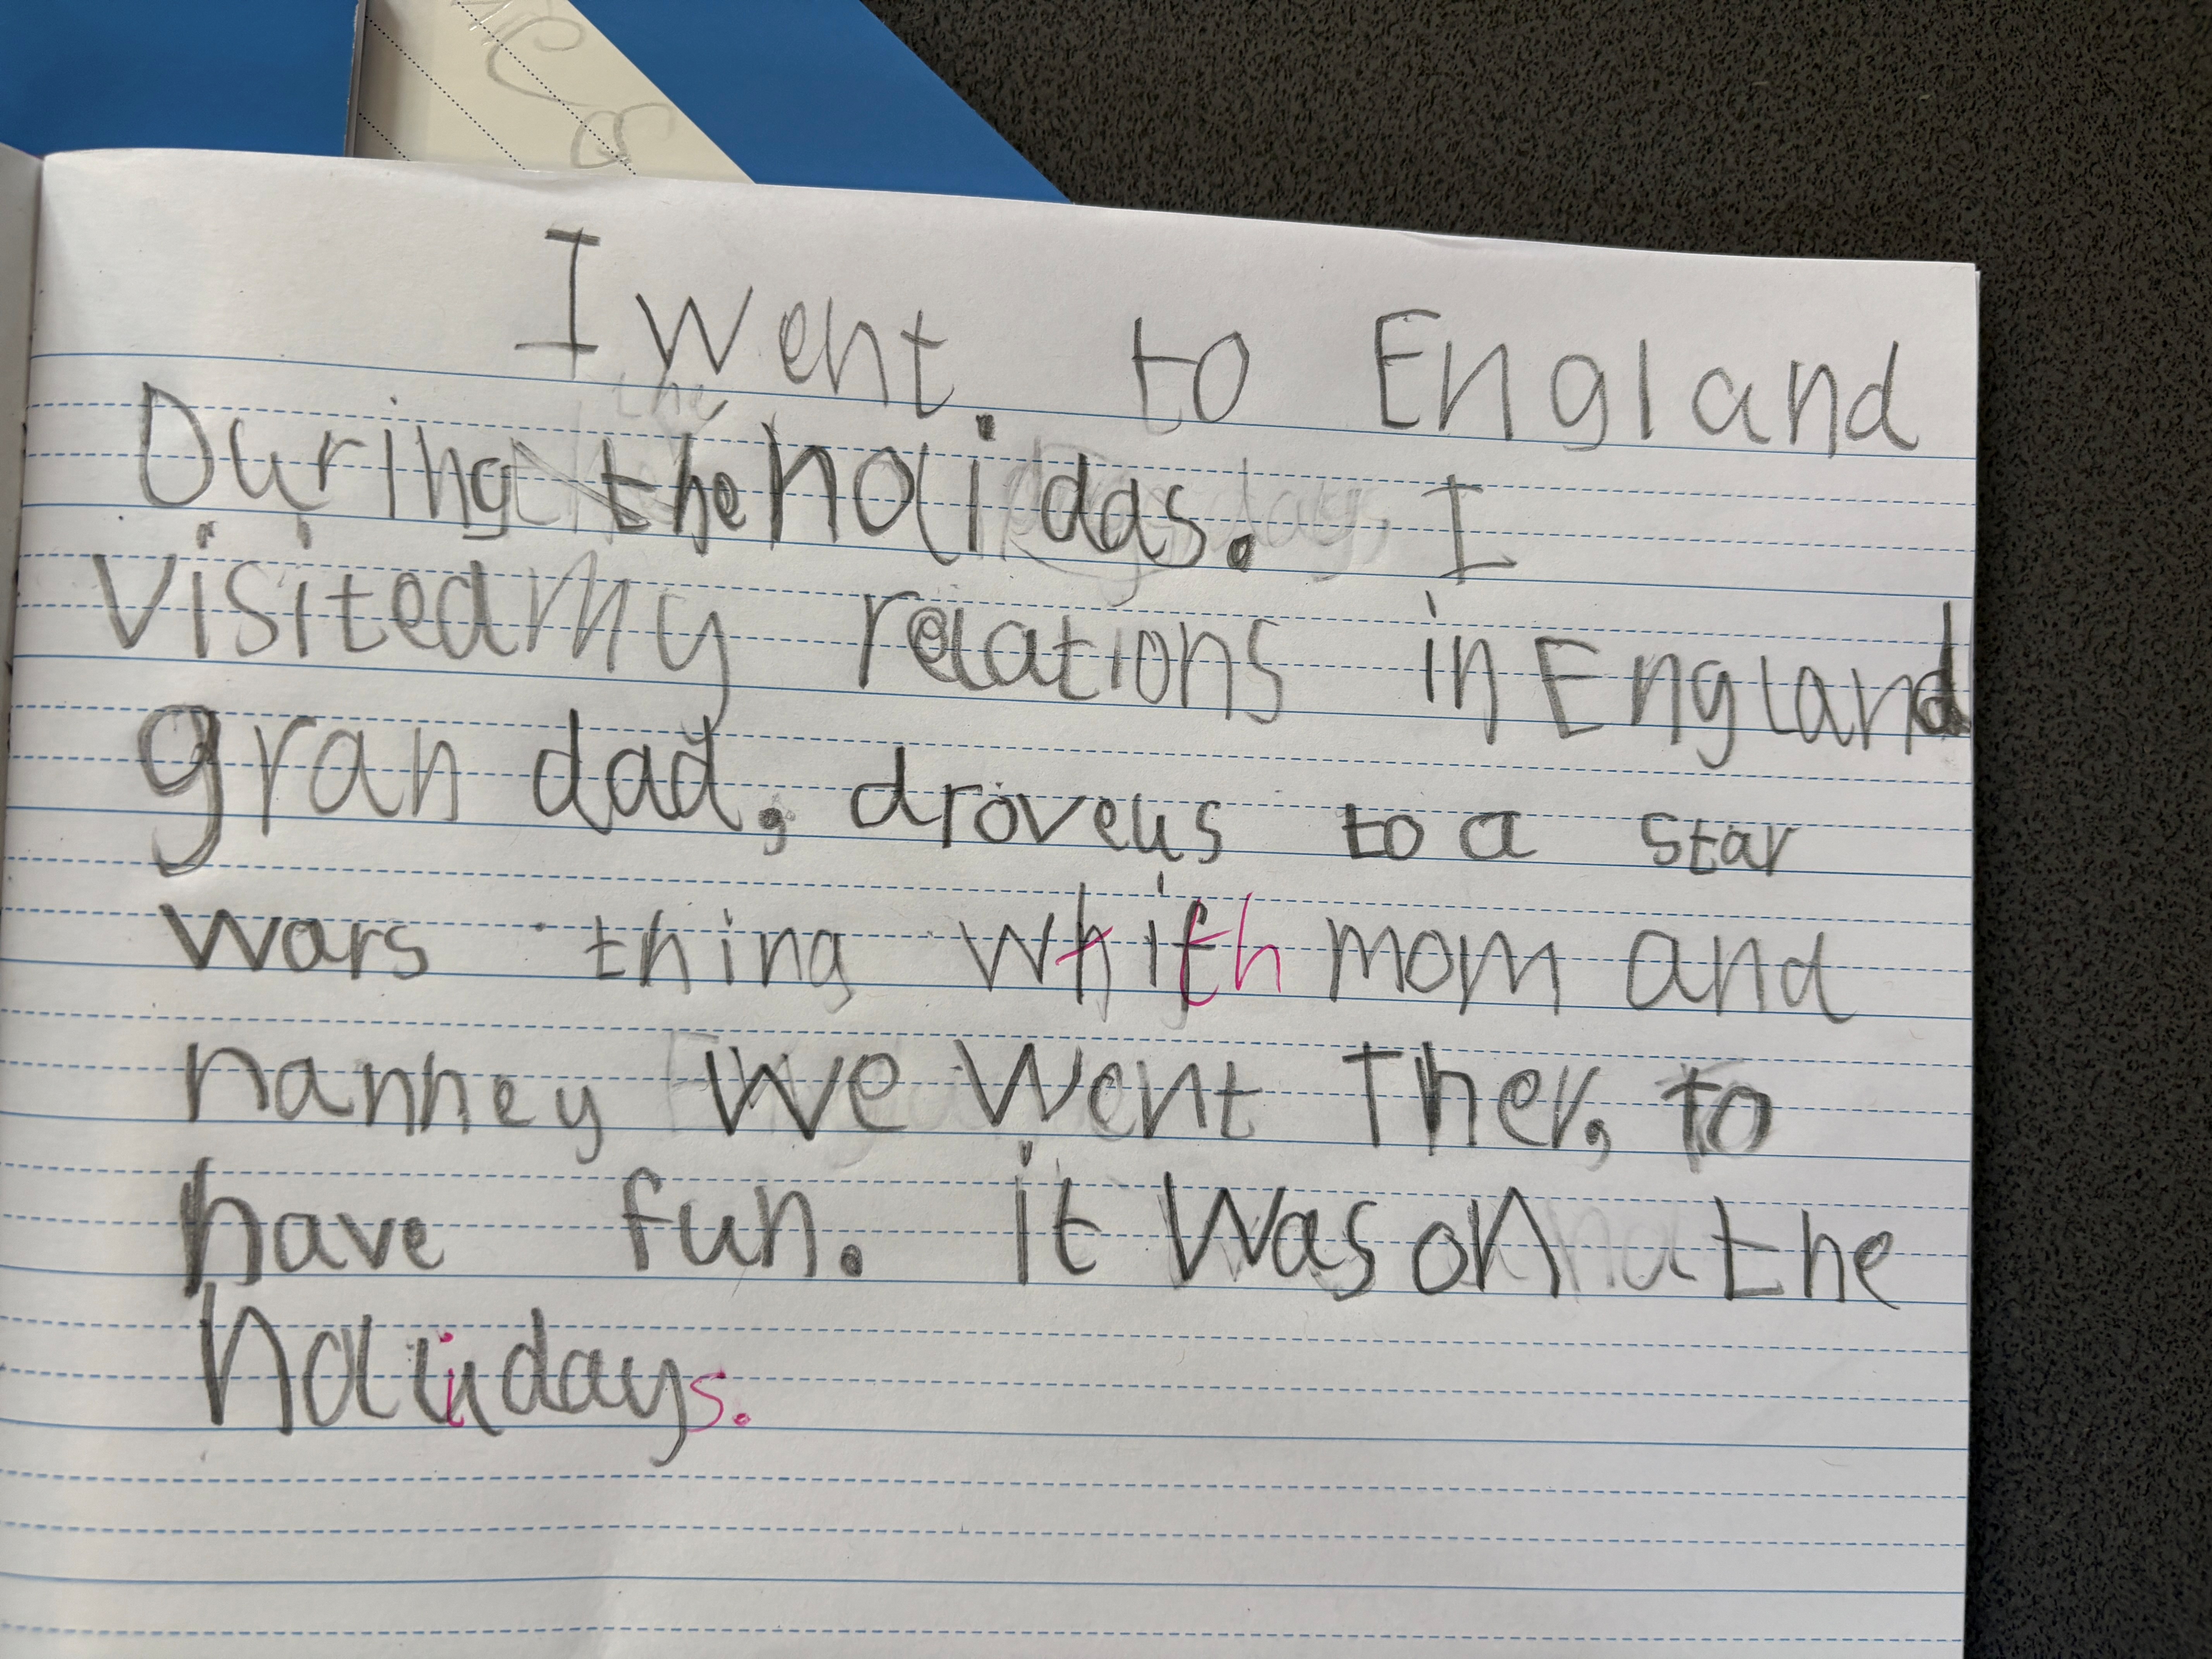 I went to England
During the holidas. I
visited my relations in England
gran dad, drove us to a star
wars thing whith mom and
nanney we went Ther, to
have fun. it was on the
holiidays.